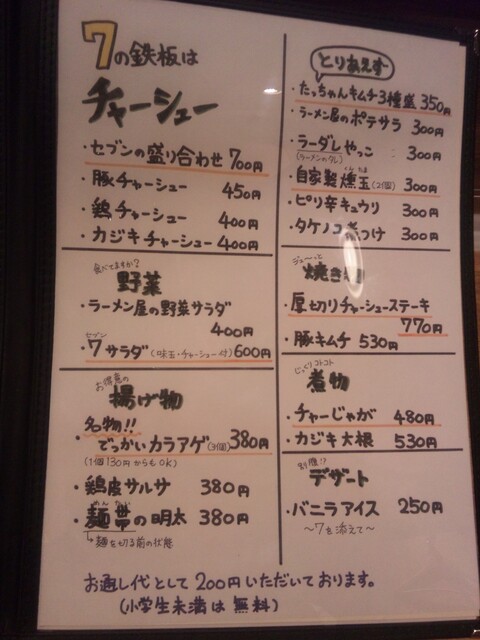 7の鉄板は
チャーシュー
・セブンの盛り合わせ 700円
・豚チャーシュー 450円
・鶏チャーシュー 400円
・カジキチャーシュー 400円
食べてますか？
野菜
・ラーメン屋の野菜サラダ
400円
セブン
・7サラダ(味玉・チャーシュー付) 600円
お得意の
揚げ物
名物!!
・でっかいカラアゲ(3個) 380円
(1個130円からもOK)
・鶏皮サルサ 380円
めんたい
・麺帯の明太 380円
↳麺を切る前の状態
とりあえず
・たっちゃんキムチ3種盛 350円
・ラーメン屋のポテサラ 300円
・ラーダレやっこ 300円
(ラーメンのタレ)
・自家製燻玉(2個) 300円
・ピリ辛キュウリ 300円
・タケノコ煮つけ 300円
ジュ〜っと
焼き物
・厚切りチャーシューステーキ
770円
・豚キムチ 530円
じっくりコトコト
煮物
・チャーじゃが 480円
・カジキ大根 530円
別腹♪
デザート
・バニラアイス 250円
〜7を添えて〜
お通し代として200円いただいております。
(小学生未満は無料)